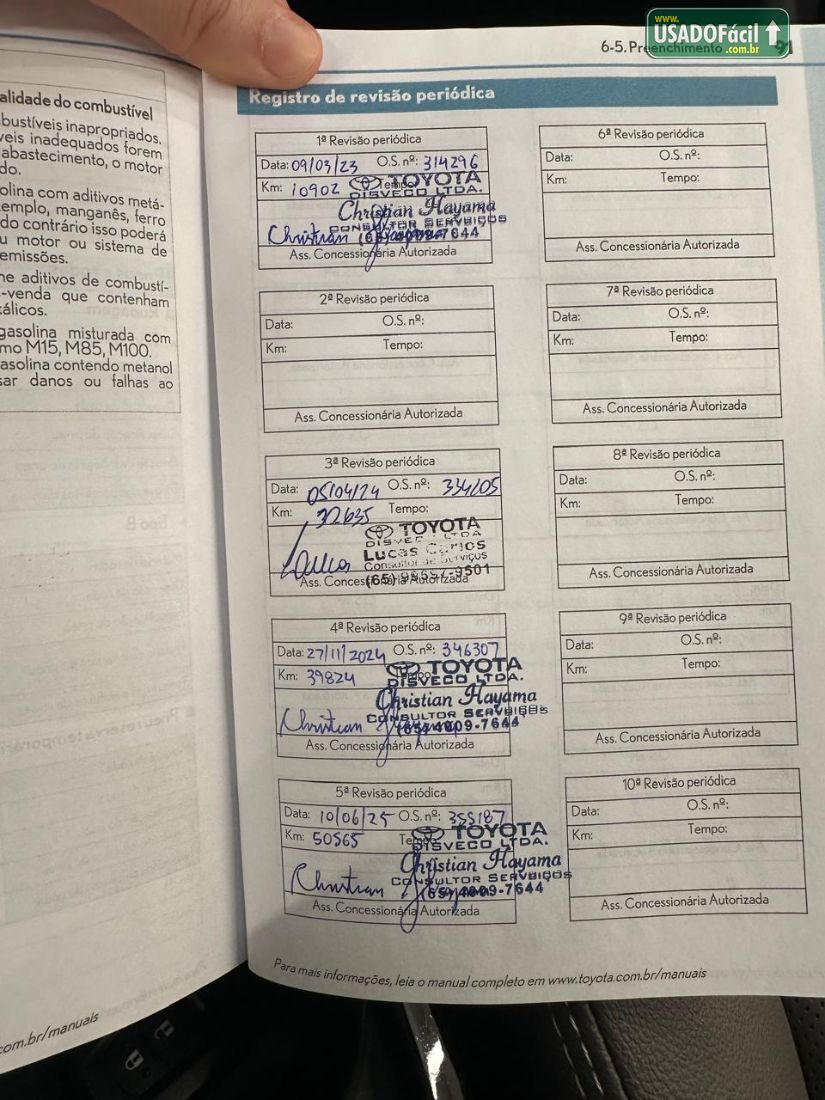 www.
USADOFácil
.com.br
6-5. Preenchimento 91
alidade do combustível
bustíveis inapropriados.
veis inadequados forem
abastecimento, o motor
do.
olina com aditivos metá-
emplo, manganês, ferro
do contrário isso poderá
u motor ou sistema de
emissões.
ne aditivos de combustí-
-venda que contenham
álicos.
gasolina misturada com
mo M15, M85, M100.
asolina contendo metanol
sar danos ou falhas ao
com.br/manuais
Registro de revisão periódica
1ª Revisão periódica
Data: 09/03/23 O.S. nº: 314296
Km: 10902 Tempo:
TOYOTA
DISVECO LTDA.
Christian Hayama
CONSULTOR SERVEIÇOS
Christian
(65) 4009-7644
Ass. Concessionária Autorizada
2ª Revisão periódica
Data: O.S. nº:
Km: Tempo:
Ass. Concessionária Autorizada
3ª Revisão periódica
Data: 05/04/24 O.S. nº: 334205
Km: 32635 Tempo:
TOYOTA
DISVECO LTDA
Lucas Carlos
Consultor de Serviços
Ass. Concessionária Autorizada
4ª Revisão periódica
Data: 27/11/2024 O.S. nº: 346307
Km: 39824 Tempo:
TOYOTA
DISVECO LTDA.
Christian Hayama
CONSULTOR SERVEIÇOS
Christian
(65) 4009-7644
Ass. Concessionária Autorizada
5ª Revisão periódica
Data: 10/06/25 O.S. nº: 355187
Km: 50565 Tempo:
TOYOTA
DISVECO LTDA.
Christian Hayama
CONSULTOR SERVEIÇOS
Christian
(65) 4009-7644
Ass. Concessionária Autorizada
6ª Revisão periódica
Data: O.S. nº:
Km: Tempo:
Ass. Concessionária Autorizada
7ª Revisão periódica
Data: O.S. nº:
Km: Tempo:
Ass. Concessionária Autorizada
8ª Revisão periódica
Data: O.S. nº:
Km: Tempo:
Ass. Concessionária Autorizada
9ª Revisão periódica
Data: O.S. nº:
Km: Tempo:
Ass. Concessionária Autorizada
10ª Revisão periódica
Data: O.S. nº:
Km: Tempo:
Ass. Concessionária Autorizada
Para mais informações, leia o manual completo em www.toyota.com.br/manuais